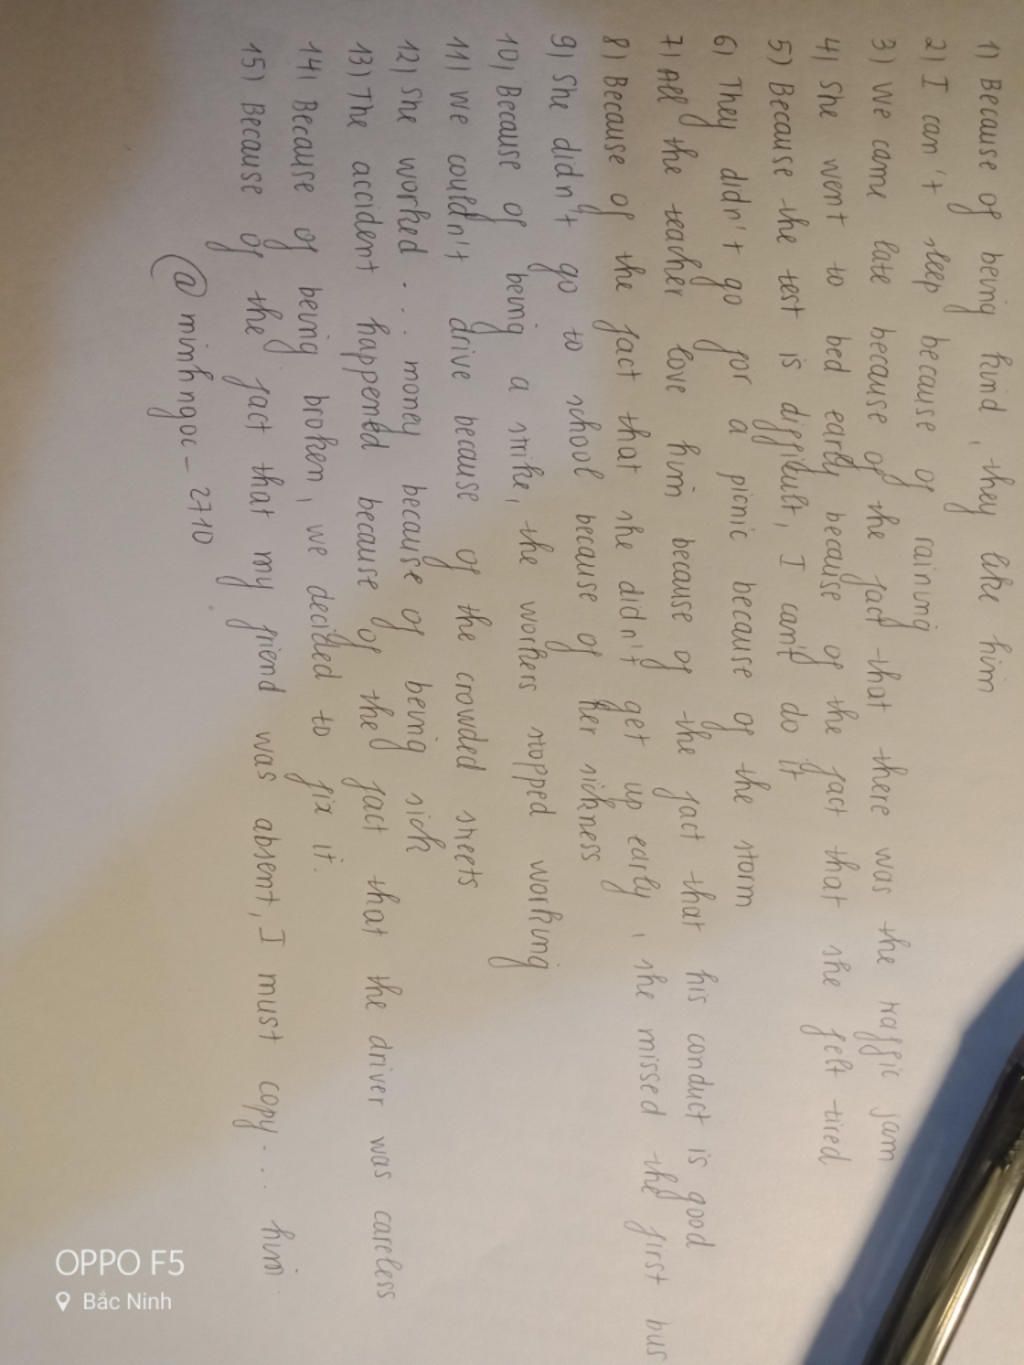 1) Because of being kind, they like him
2) I can't sleep because of raining
3) We came late because of the fact that there was the traffic jam
4) She went to bed early because of the fact that she felt tired
5) Because the test is difficult, I can't do it
6) They didn't go for a picnic because of the storm
7) All the teacher love him because of the fact that his conduct is good
8) Because of the fact that she didn't get up early, she missed the first bus
9) She didn't go to school because of her sickness
10) Because of being a strike, the workers stopped working
11) We couldn't drive because of the crowded streets
12) She worked... money because of being sick
13) The accident happened because of the fact that the driver was careless
14) Because of being broken, we decided to fix it.
15) Because of the fact that my friend was absent, I must copy... him
@minhngoc-2710
OPPO F5
Bắc Ninh